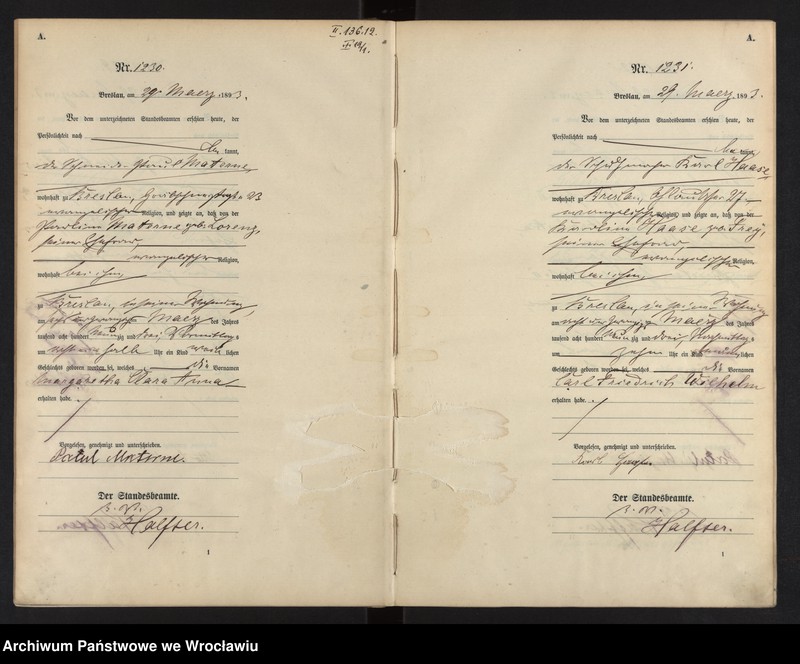 A.
II. 136.12.
Nr. 1230.
Breslau, am 29. Maerz 1893.
Vor dem unterzeichneten Standesbeamten erschien heute, der
Persönlichkeit nach
kannt,
Materne,
wohnhaft zu Breslau,
evangelischer Religion, und zeigte an, daß von der
Materne geb. Lorenz,
seiner Ehefrau
evangelischer Religion,
wohnhaft bei ihm,
zu Breslau, in seiner Wohnung,
am acht und zwanzigsten Maerz des Jahres
tausend acht hundert neunzig und drei Vormittags
um halb Uhr ein Kind weiblichen
Geschlechts geboren worden sei, welches die Vornamen
Margaretha Clara Anna
erhalten habe.
Vorgelesen, genehmigt und unterschrieben.
Paul Materne.
Der Standesbeamte.
Halfter.
1
A.
Nr. 1231.
Breslau, am 29. Maerz 1893.
Vor dem unterzeichneten Standesbeamten erschien heute, der
Persönlichkeit nach
kannt,
der Schuhmacher Karl Haase,
wohnhaft zu Breslau, 27
evangelischer Religion, und zeigte an, daß von der
Haase geb. Frey,
seiner Ehefrau
evangelischer Religion,
wohnhaft bei ihm,
zu Breslau, in seiner Wohnung
am acht und zwanzigsten Maerz des Jahres
tausend acht hundert neunzig und drei, Nachmittags
um zehn Uhr ein Kind männlichen
Geschlechts geboren worden sei, welches die Vornamen
Carl Friedrich Wilhelm
erhalten habe.
Vorgelesen, genehmigt und unterschrieben.
Karl Haase.
Der Standesbeamte.
Halfter.
1
Archiwum Państwowe we Wrocławiu